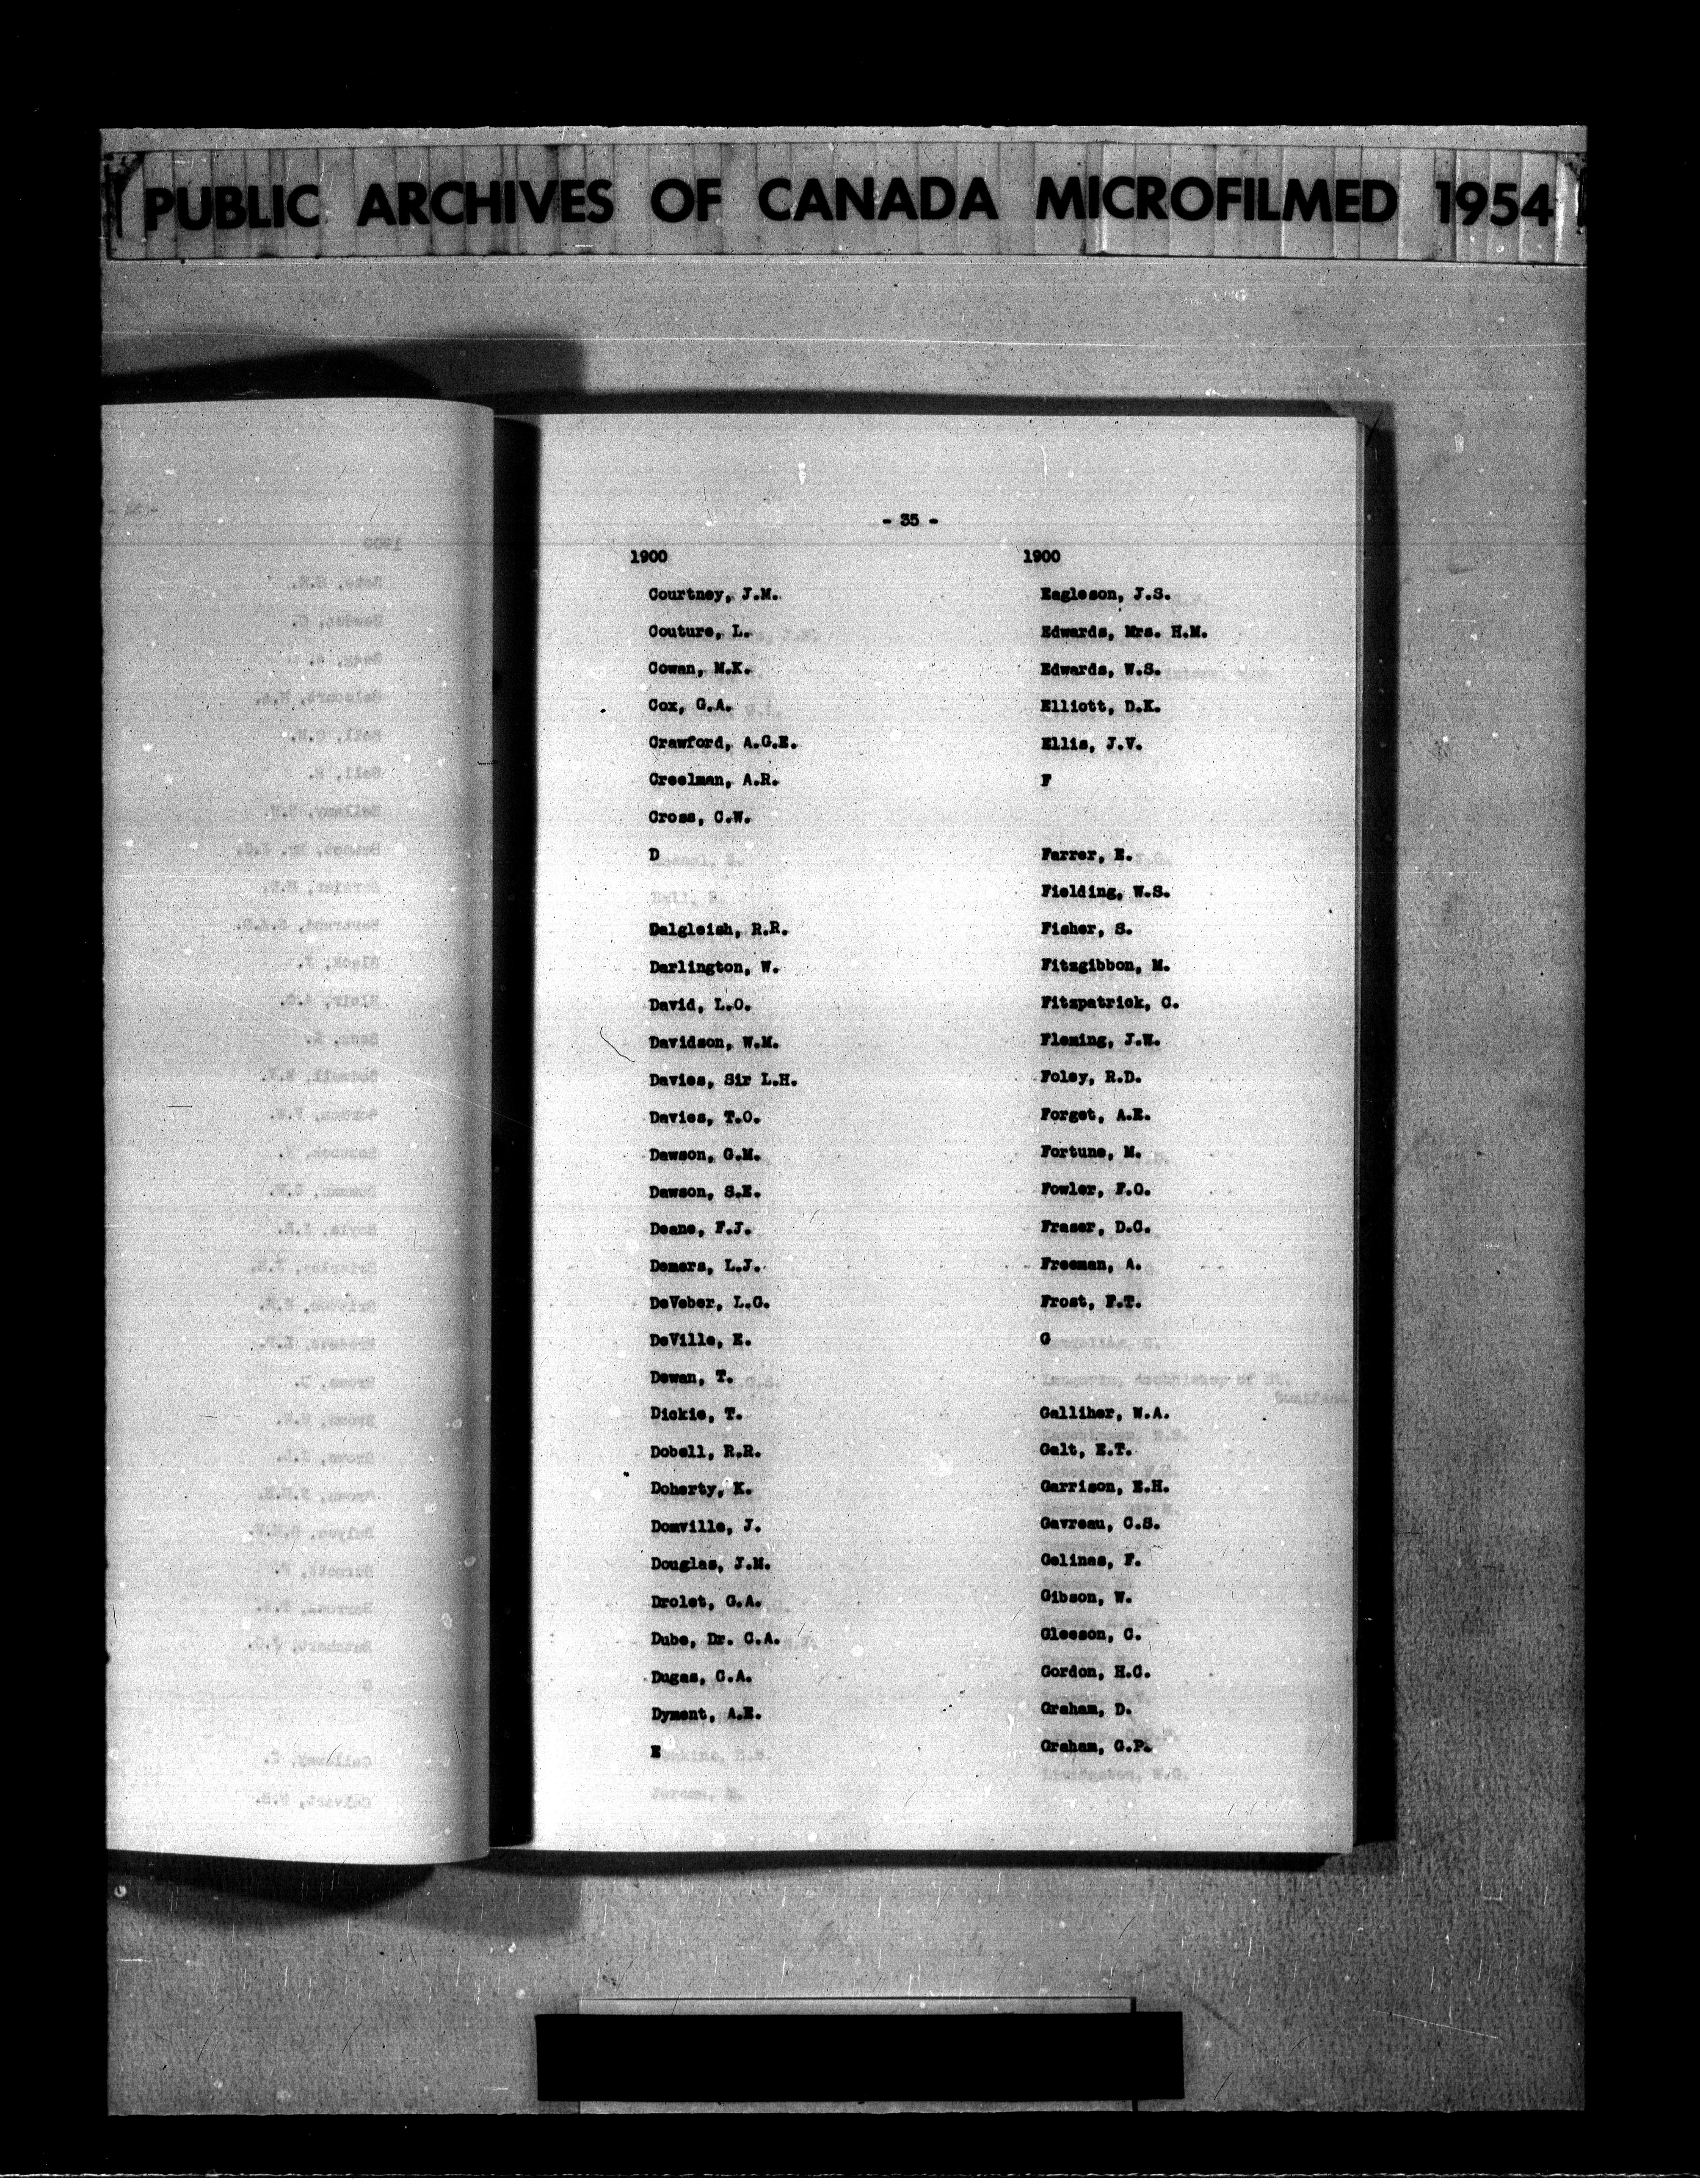 PUBLIC ARCHIVES OF CANADA MICROFILMED 1954
- 35 -
1900
Courtney, J.M.
Couture, L.
Cowan, M.K.
Cox, G.A.
Crawford, A.G.E.
Creelman, A.R.
Cross, C.W.
D
Dalgleish, R.R.
Darlington, W.
David, L.O.
Davidson, W.M.
Davies, Sir L.H.
Davies, T.O.
Dawson, G.M.
Dawson, S.E.
Deane, F.J.
Demers, L.J.
DeVeber, L.G.
DeVille, E.
Dewan, T.
Dickie, T.
Dobell, R.R.
Doherty, K.
Domville, J.
Douglas, J.M.
Drolet, G.A.
Dube, Dr. C.A.
Dugas, C.A.
Dyment, A.E.
E
1900
Eagleson, J.S.
Edwards, Mrs. H.M.
Edwards, W.S.
Elliott, D.K.
Ellis, J.V.
F
Farrer, E.
Fielding, W.S.
Fisher, S.
Fitzgibbon, M.
Fitzpatrick, C.
Fleming, J.W.
Foley, R.D.
Forget, A.E.
Fortune, M.
Fowler, F.O.
Fraser, D.C.
Freeman, A.
Frost, F.T.
G
Galliher, W.A.
Galt, E.T.
Garrison, E.H.
Gavreau, C.S.
Gelinas, F.
Gibson, W.
Gleeson, C.
Gordon, H.C.
Graham, D.
Graham, G.P.